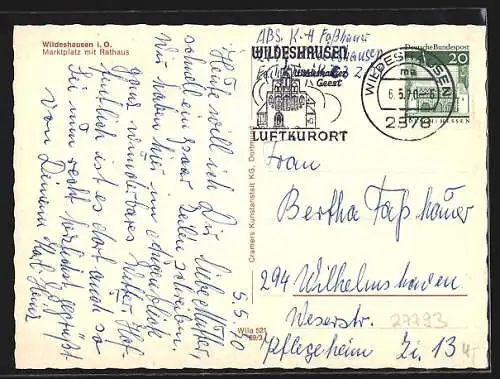 Wildeshausen i. O.
Marktplatz mit Rathaus
5.5.70
Heute will ich Dir, liebe Mutter,
schnell ein paar Zeilen schreiben.
Wir haben hier im Augenblick
ganz wunderbares Wetter. Hof-
fentlich ist es dort auch so.
Sei nun recht herzlich gegrüßt
von Deinem Karl-Heinz
Cramers Kunstanstalt KG, Dortmund
Wila 521
ABS. K-H Faßhauer
WILDESHAUSEN
Geest
LUFTKURORT
Deutsche Bundespost
20
WILDESHAUSEN
ma
6.5.70
2878
HESSEN
Frau
Bertha Faßhauer
294 Wilhelmshaven
Weserstr.
27793
Pflegeheim Zi. 13